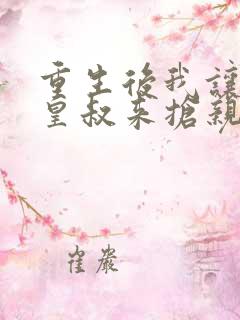 重生後我讓
皇叔來搶親
崔嚴